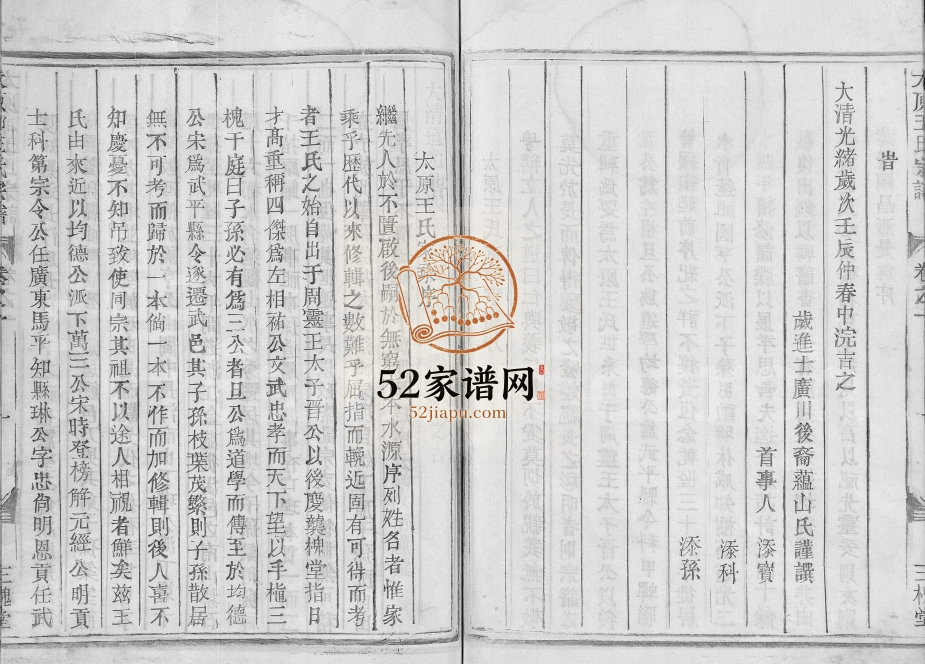 旹
大清光緒歲次壬辰仲春中浣吉之
歲進士廣川後裔蘊山氏謹譔
首事人 添寶
添科
添孫
太原王氏
繼先人於不匱啟後嗣於無窮本水源序列姓名者惟家
乘乎歴代以來修輯之數難乎屈指而輓近固有可得而考
者王氏之始自出于周靈王太子晋公以後慶襲槐堂指日
才高重稱四傑爲左相祐公文武忠孝而天下望以手植三
槐于庭曰子孫必有爲三公者旦公爲道學而傳至於均德
公宋爲武平縣令逐遷武邑其子孫枝葉茂繁則子孫散居
無不可考而歸於一本倘一本不作而加修輯則後人喜不
知慶憂不知吊致使同宗其祖不以途人相視者鮮矣兹王
氏由來近以均德公派下萬三公宋時登榜解元經公明貢
士科第宗令公任廣東馬平知縣琳公字忠尙明恩貢任武
三槐堂
52家谱网
52jiapu.com